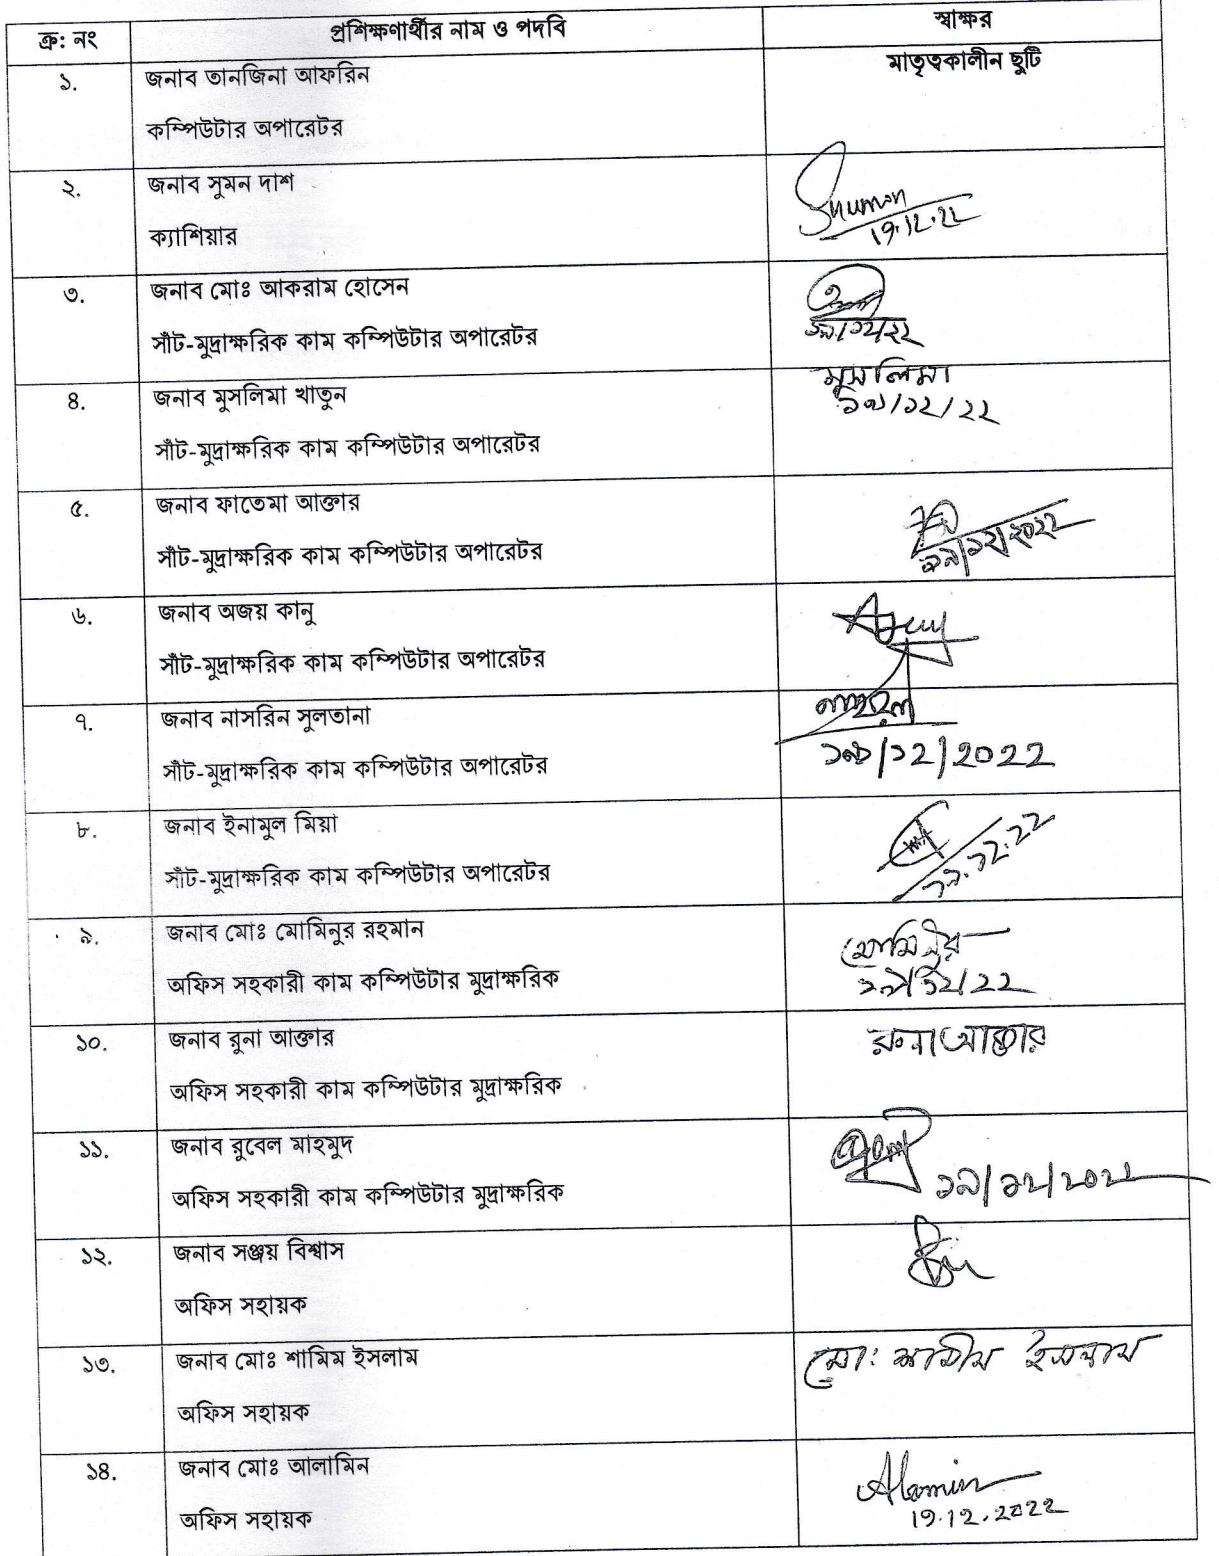 ক্র: নং প্রশিক্ষণার্থীর নাম ও পদবি স্বাক্ষর
১. জনাব তানজিনা আফরিন মাতৃত্বকালীন ছুটি
কম্পিউটার অপারেটর
২. জনাব সুমন দাশ Shumon
ক্যাশিয়ার 19.12.22
৩. জনাব মোঃ আকরাম হোসেন
সাঁট-মুদ্রাক্ষরিক কাম কম্পিউটার অপারেটর ১৯/১২/২২
৪. জনাব মুসলিমা খাতুন মুসলিমা
১৯/১২/২২
সাঁট-মুদ্রাক্ষরিক কাম কম্পিউটার অপারেটর
৫. জনাব ফাতেমা আক্তার
সাঁট-মুদ্রাক্ষরিক কাম কম্পিউটার অপারেটর ১৯/১২/২০২২
৬. জনাব অজয় কানু
সাঁট-মুদ্রাক্ষরিক কাম কম্পিউটার অপারেটর
৭. জনাব নাসরিন সুলতানা
সাঁট-মুদ্রাক্ষরিক কাম কম্পিউটার অপারেটর ১৯/১২/২০২২
৮. জনাব ইনামুল মিয়া
সাঁট-মুদ্রাক্ষরিক কাম কম্পিউটার অপারেটর ১৯.১২.২২
৯. জনাব মোঃ মোমিনুর রহমান মোমিনুর
অফিস সহকারী কাম কম্পিউটার মুদ্রাক্ষরিক ১৯/১২/২২
১০. জনাব রুনা আক্তার রুনা আক্তার
অফিস সহকারী কাম কম্পিউটার মুদ্রাক্ষরিক
১১. জনাব রুবেল মাহমুদ
অফিস সহকারী কাম কম্পিউটার মুদ্রাক্ষরিক ১৯/১২/২০২২
১২. জনাব সঞ্জয় বিশ্বাস
অফিস সহায়ক
১৩. জনাব মোঃ শামিম ইসলাম মো: শামীম ইসলাম
অফিস সহায়ক
১৪. জনাব মোঃ আলামিন Alamin
অফিস সহায়ক 19.12.2022